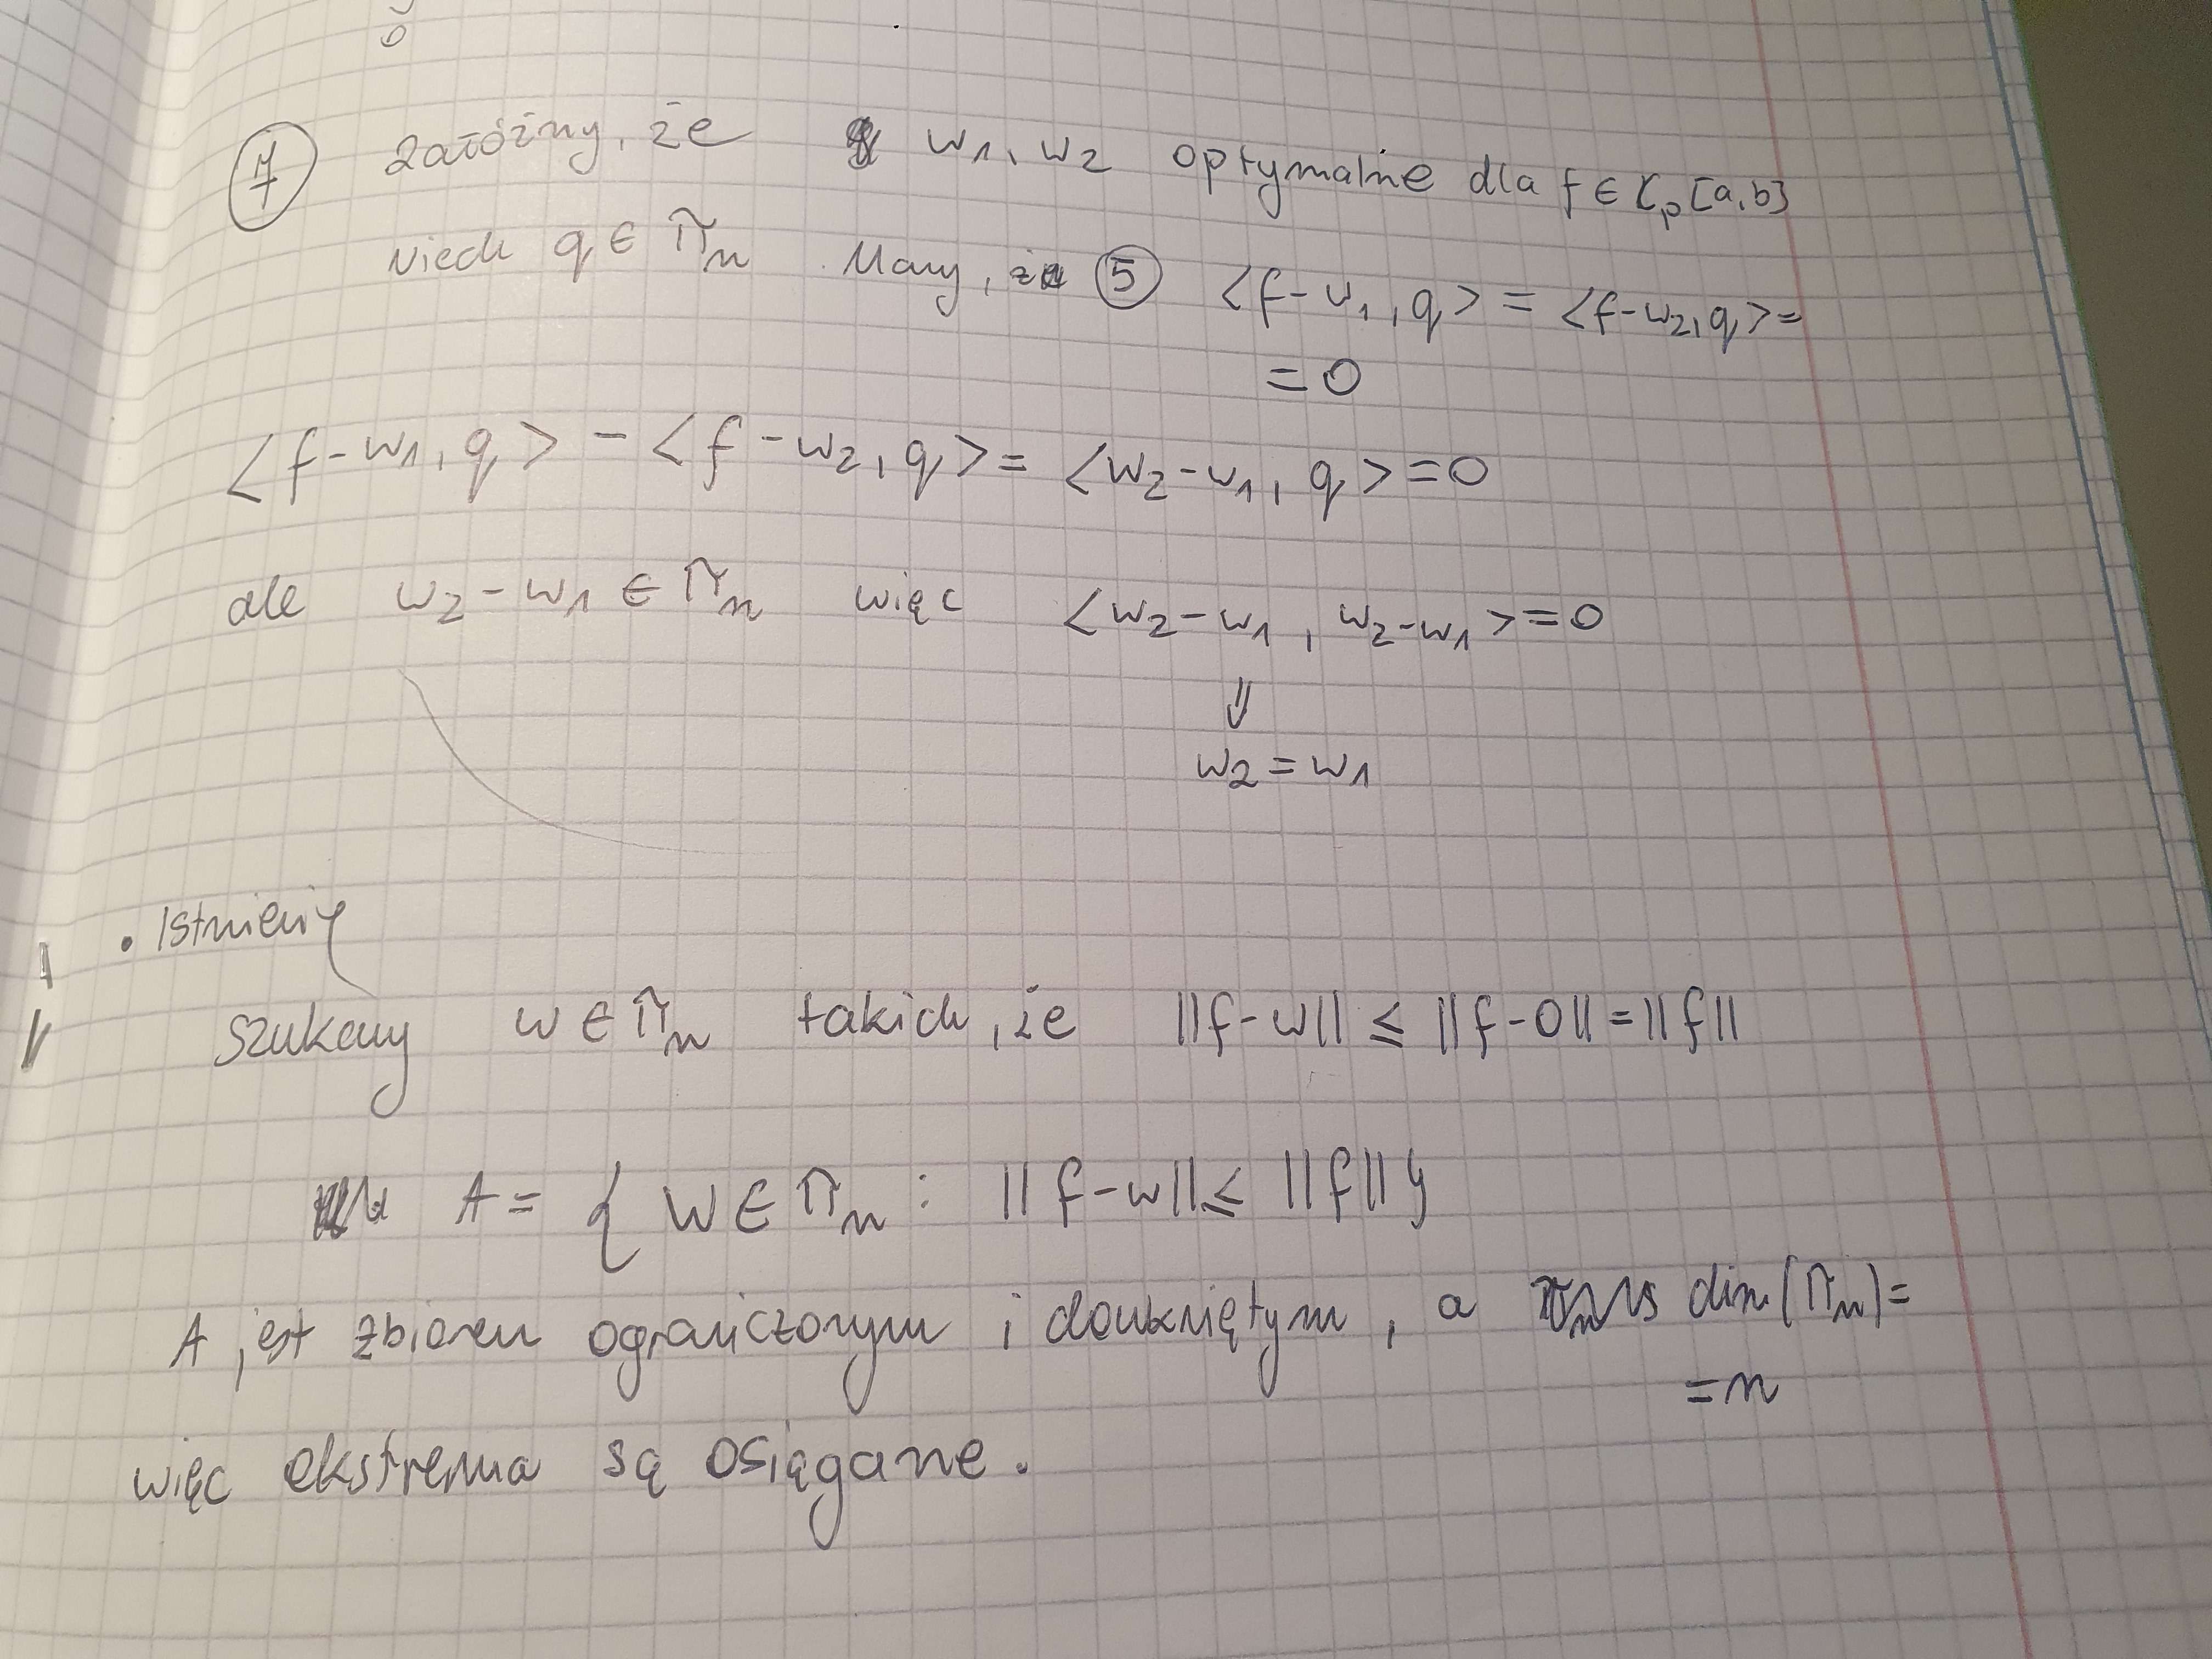 ⑦ Załóżmy, że w₁, w₂ optymalne dla f ∈ Cₚ[a,b]
Niech q ∈ Πₙ. Mamy, z ⑤ <f-w₁, q> = <f-w₂, q> =
= 0
<f-w₁, q> - <f-w₂, q> = <w₂-w₁, q> = 0
ale w₂-w₁ ∈ Πₙ więc <w₂-w₁, w₂-w₁> = 0
⇓
w₂ = w₁
• Istnienie
Szukamy w ∈ Πₙ takich, że ||f-w|| ≤ ||f-0|| = ||f||
A = { w ∈ Πₙ : ||f-w|| ≤ ||f|| }
A jest zbiorem ograniczonym i domkniętym, a dim(Πₙ) =
= n
więc ekstrema są osiągane.